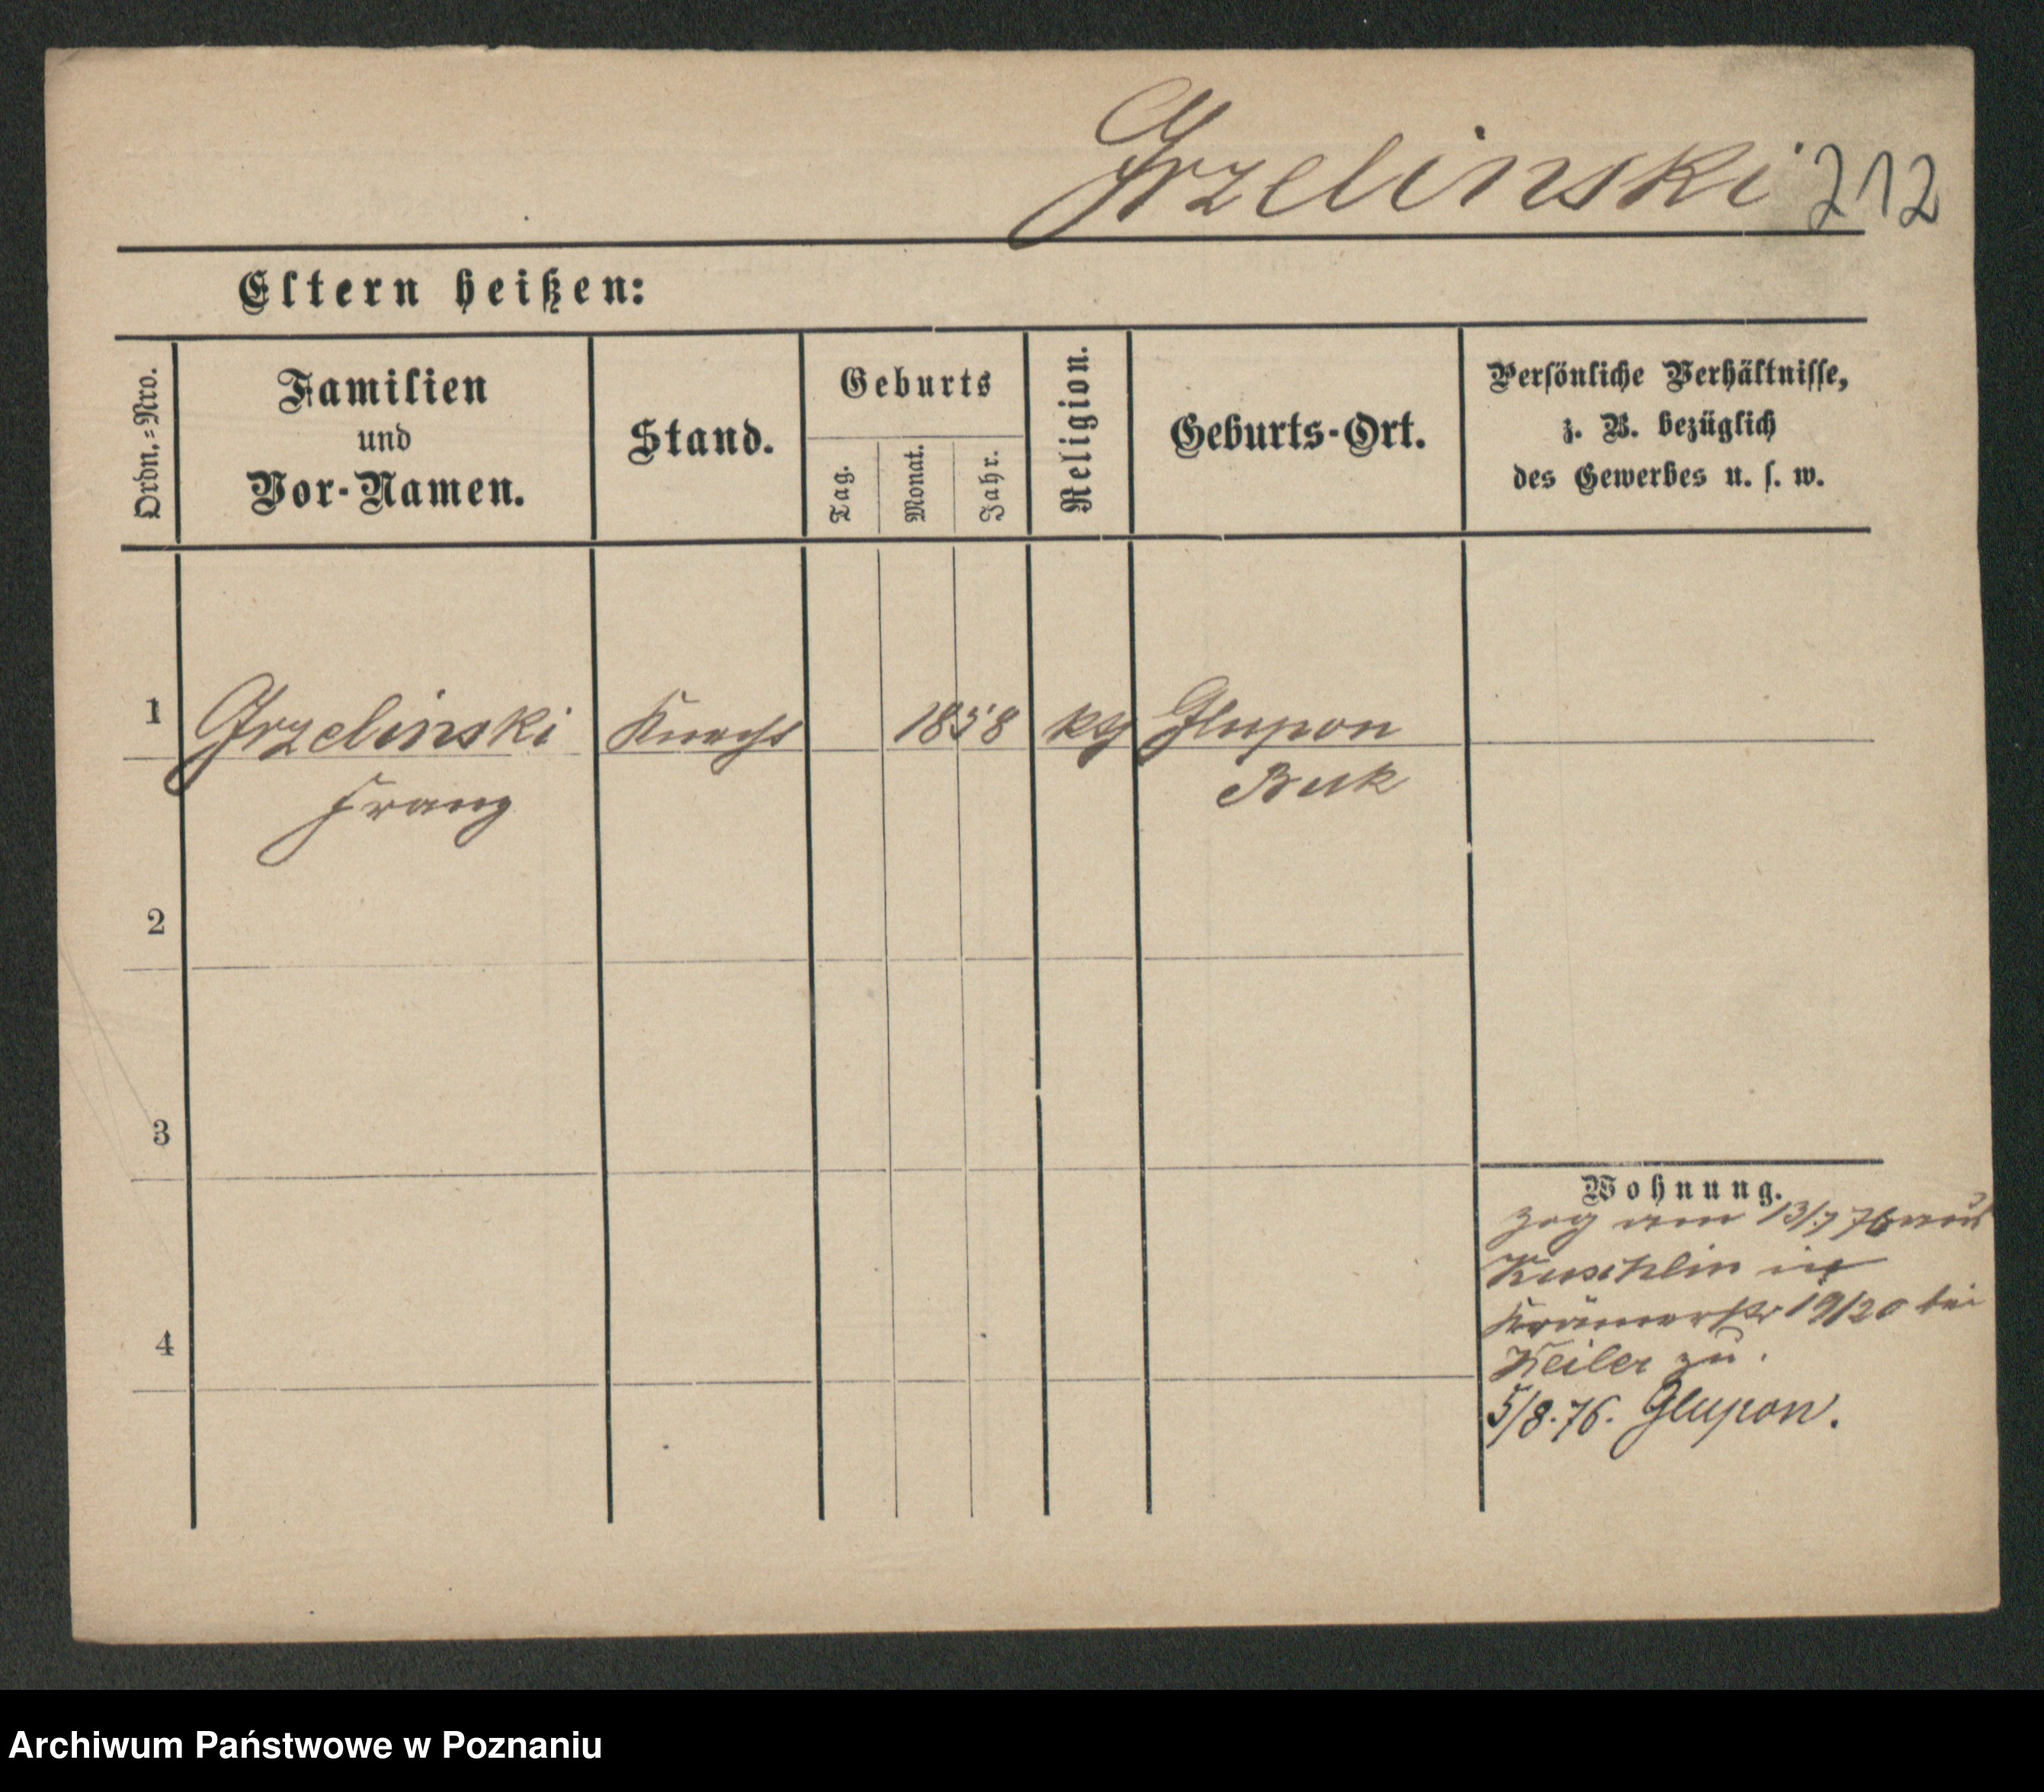 Grzelinski 212
Eltern heißen:
Ordn.=Nro.
Familien
und
Vor-Namen.
Stand.
Geburts
Tag.
Monat.
Jahr.
Religion.
Geburts-Ort.
Persönliche Verhältnisse,
z. B. bezüglich
des Gewerbes u. s. w.
1 Grzelinski Knecht 1858 kth Glupon
Franz Buk
2
3
4
Wohnung.
zog am 13/7 76 aus
Kuschlin in
Krämerstr 19/20 bei
Keiler zu.
5/8.76. Glupon.
Archiwum Państwowe w Poznaniu